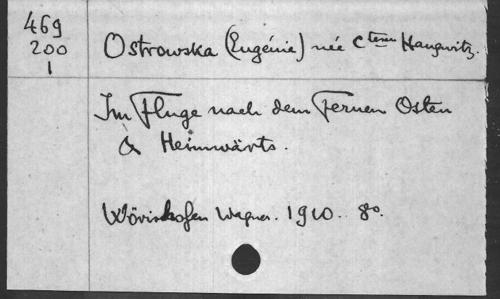 469
200
1
Ostrowska (Eugénie) née Ctesse Haugwitz.
Im Fluge nach dem Fernen Osten
& Heimwärts.
Wörishofen Wagner. 1910. 8o.